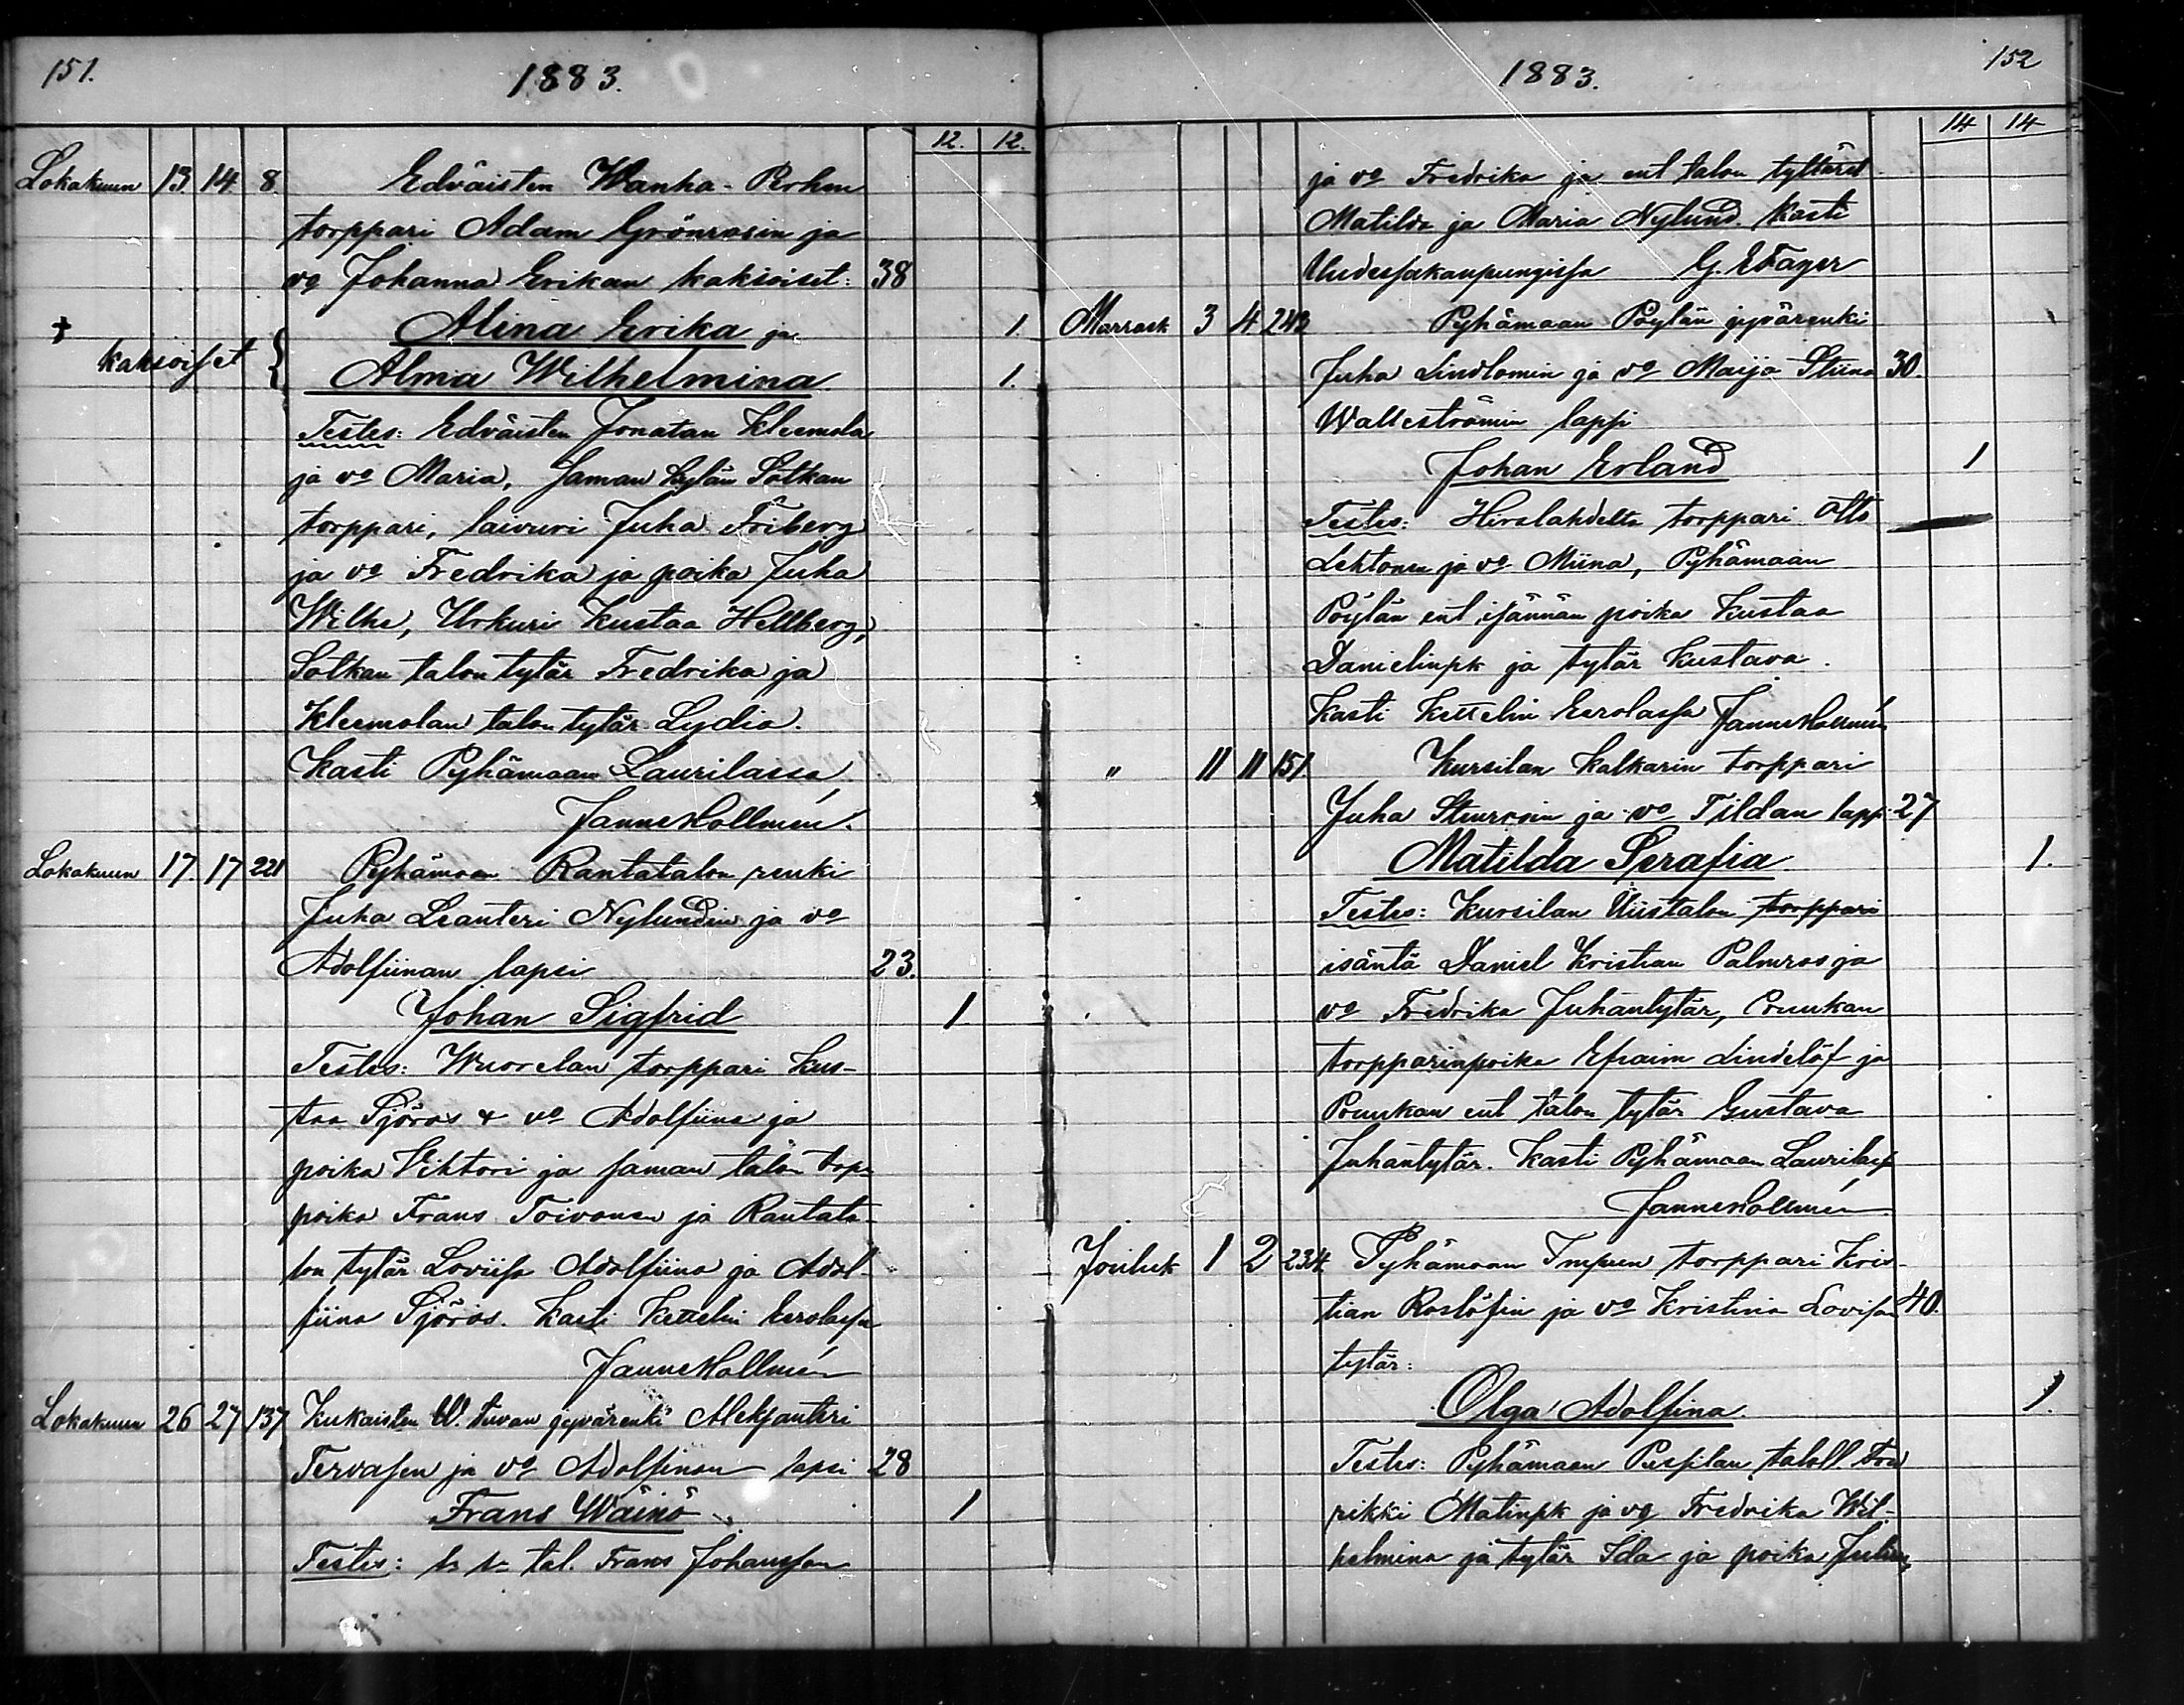 151.
1883.
12. 12.
Lokakuun 13. 14. 8. Edväisten Wanha-Perhen
torppari Adam Grönroosin ja
vo Johanna Erikan kaksoiset: 38
† Alina Erika ja 1.
kaksoiset { Alma Wilhelmina 1.
Testes: Edväisten Jonatan Kleemola
ja vo Maria, saman kylän Sotkan
torppari, laivuri Juha Friberg
ja vo Fredrika ja poika Juha
Wilhe, Urkuri Kustaa Hellberg,
Sotkan talon tytär Fredrika ja
Kleemolan talon tytär Lydia.
Kasti Pyhämaan Laurilassa,
Janne Hollmén.
Lokakuun 17. 17 221 Pyhämaan Rantatalon renki
Juha Leanteri Nylundin ja vo
Adolfiinan lapsi 23.
Johan Sigfrid 1
Testes: Wuorelan torppari Kus-
taa Sjöros & vo Adolfiina ja
poika Viktori ja saman talon torp.
poika Frans Toivonen ja Rantata-
lon tytär Loviisa Adolfiina ja Adol-
fiina Sjöros. Kasti Kettelin Eerolassa
Janne Hollmén
Lokakuun 26 27 137 Kukaisten W. tuvan jyvärenki Aleksanteri
Tervasen ja vo Adolfinan lapsi 28
Frans Wäinö 1
Testes: tal. Frans Johansson
1883.
152
14 14
ja vo Fredrika ja ent talon tyttäret
Matilda ja Maria Nylund. Kasti
Uudessakaupungissa G. E Fager
Marrask 3 4 242 Pyhämaan Pöylän jyvärenki
Juha Lindlomin ja vo Maija Stiina 30.
Walleströmin lapsi
Johan Erland 1
Testes: Hirslahdelta torppari Otto
Lehtonen ja vo Miina, Pyhämaan
Pöylän ent isännän poika Kustaa
Danielinpk ja tytär Kustava.
Kasti Kettelin Eerolassa Janne Hollmén
" 11 11 151. Kursilan Kalkarin torppari
Juha Stenrosin ja vo Tildan laps: 27
Matilda Serafia 1.
Testes: Kursilan Uustalon torppari
isäntä Daniel Kristian Palmros ja
vo Fredrika Juhantytär, Pruukan
torpparinpoika Efraim Lindelöf ja
Pruukan ent talon tytär Gustava
Juhantytär. Kasti Pyhämaan Laurilass
Janne Hollmén
Jouluk 1 2 234. Pyhämaan Impun torppari Kris-
tian Roslöfin ja vo Kristina Lovisan 40.
tytär:
Olga Adolfina. 1.
Testes: Pyhämaan Pirssilan taloll.
rikki Matinpk ja vo Fredrika Wil-
helmina ja tytär Ida ja poika Julius,